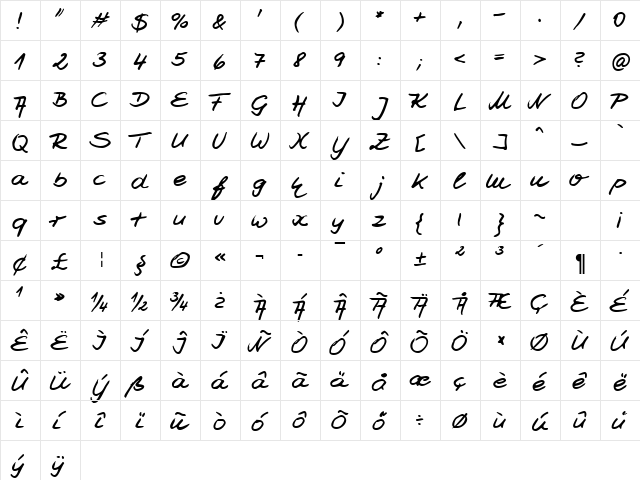 ! " # $ % & ' ( ) * + , - . / 0
1 2 3 4 5 6 7 8 9 : ; < = > ? @
A B C D E F G H I J K L M N O P
Q R S T U V W X Y Z [ \ ] ^ _ `
a b c d e f g h i j k l m n o p
q r s t u v w x y z { | } ~ ¡
¢ £ ¦ § © « ¬ - ¯ ° ± ² ³ ´ ¶ ·
¹ » ¼ ½ ¾ ¿ À Á Â Ã Ä Å Æ Ç È É
Ê Ë Ì Í Î Ï Ñ Ò Ó Ô Õ Ö × Ø Ù Ú
Û Ü Ý ß à á â ã ä å æ ç è é ê ë
ì í î ï ñ ò ó ô õ ö ÷ ø ù ú û ü
ý ÿ